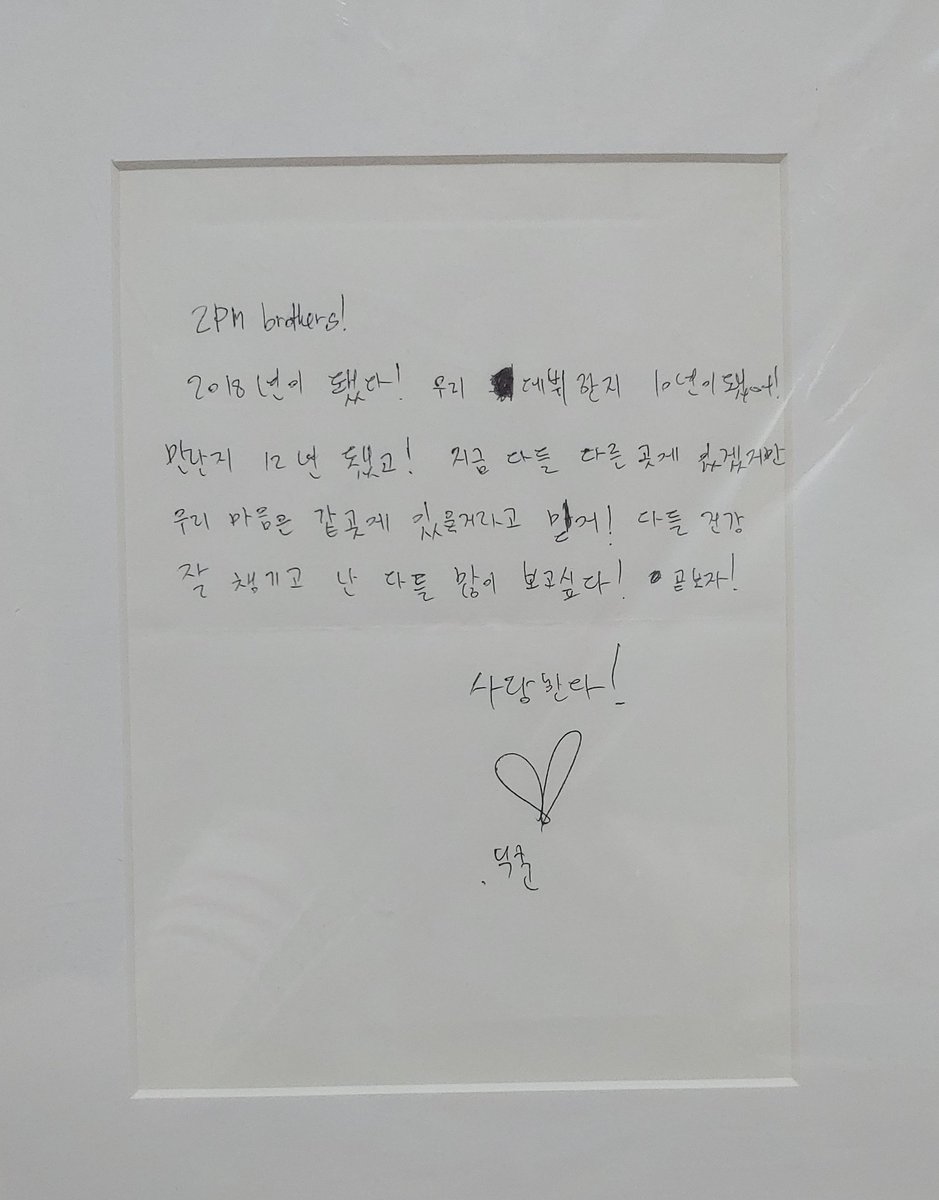 2PM brothers!
2018년이 됐다! 우리 데뷔한지 10년이 됐어!
만난지 12년 됐고! 지금 다들 다른 곳게 있겠지만
우리 마음은 같곳게 있을거라고 믿거! 다들 건강
잘 챙기고 난 다들 많이 보고싶다! 곧보자!
사랑한다!
닉쿤